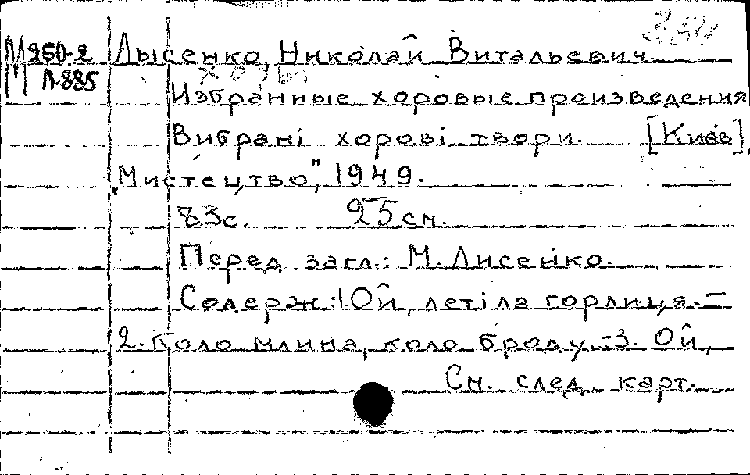 М 250-2 Лысенко, Николай Витальевич
М Л-885
Избранные хоровые произведения
Вибрані хорові твори. [Київ],
„Мистецтво", 1949.
83с. 25см.
Перед загл.: М. Лисенко.
Содерж.: 1. Ой, летіла горлиця. –
2. Коло млина, коло броду. – 3. Ой,
См. след. карт.